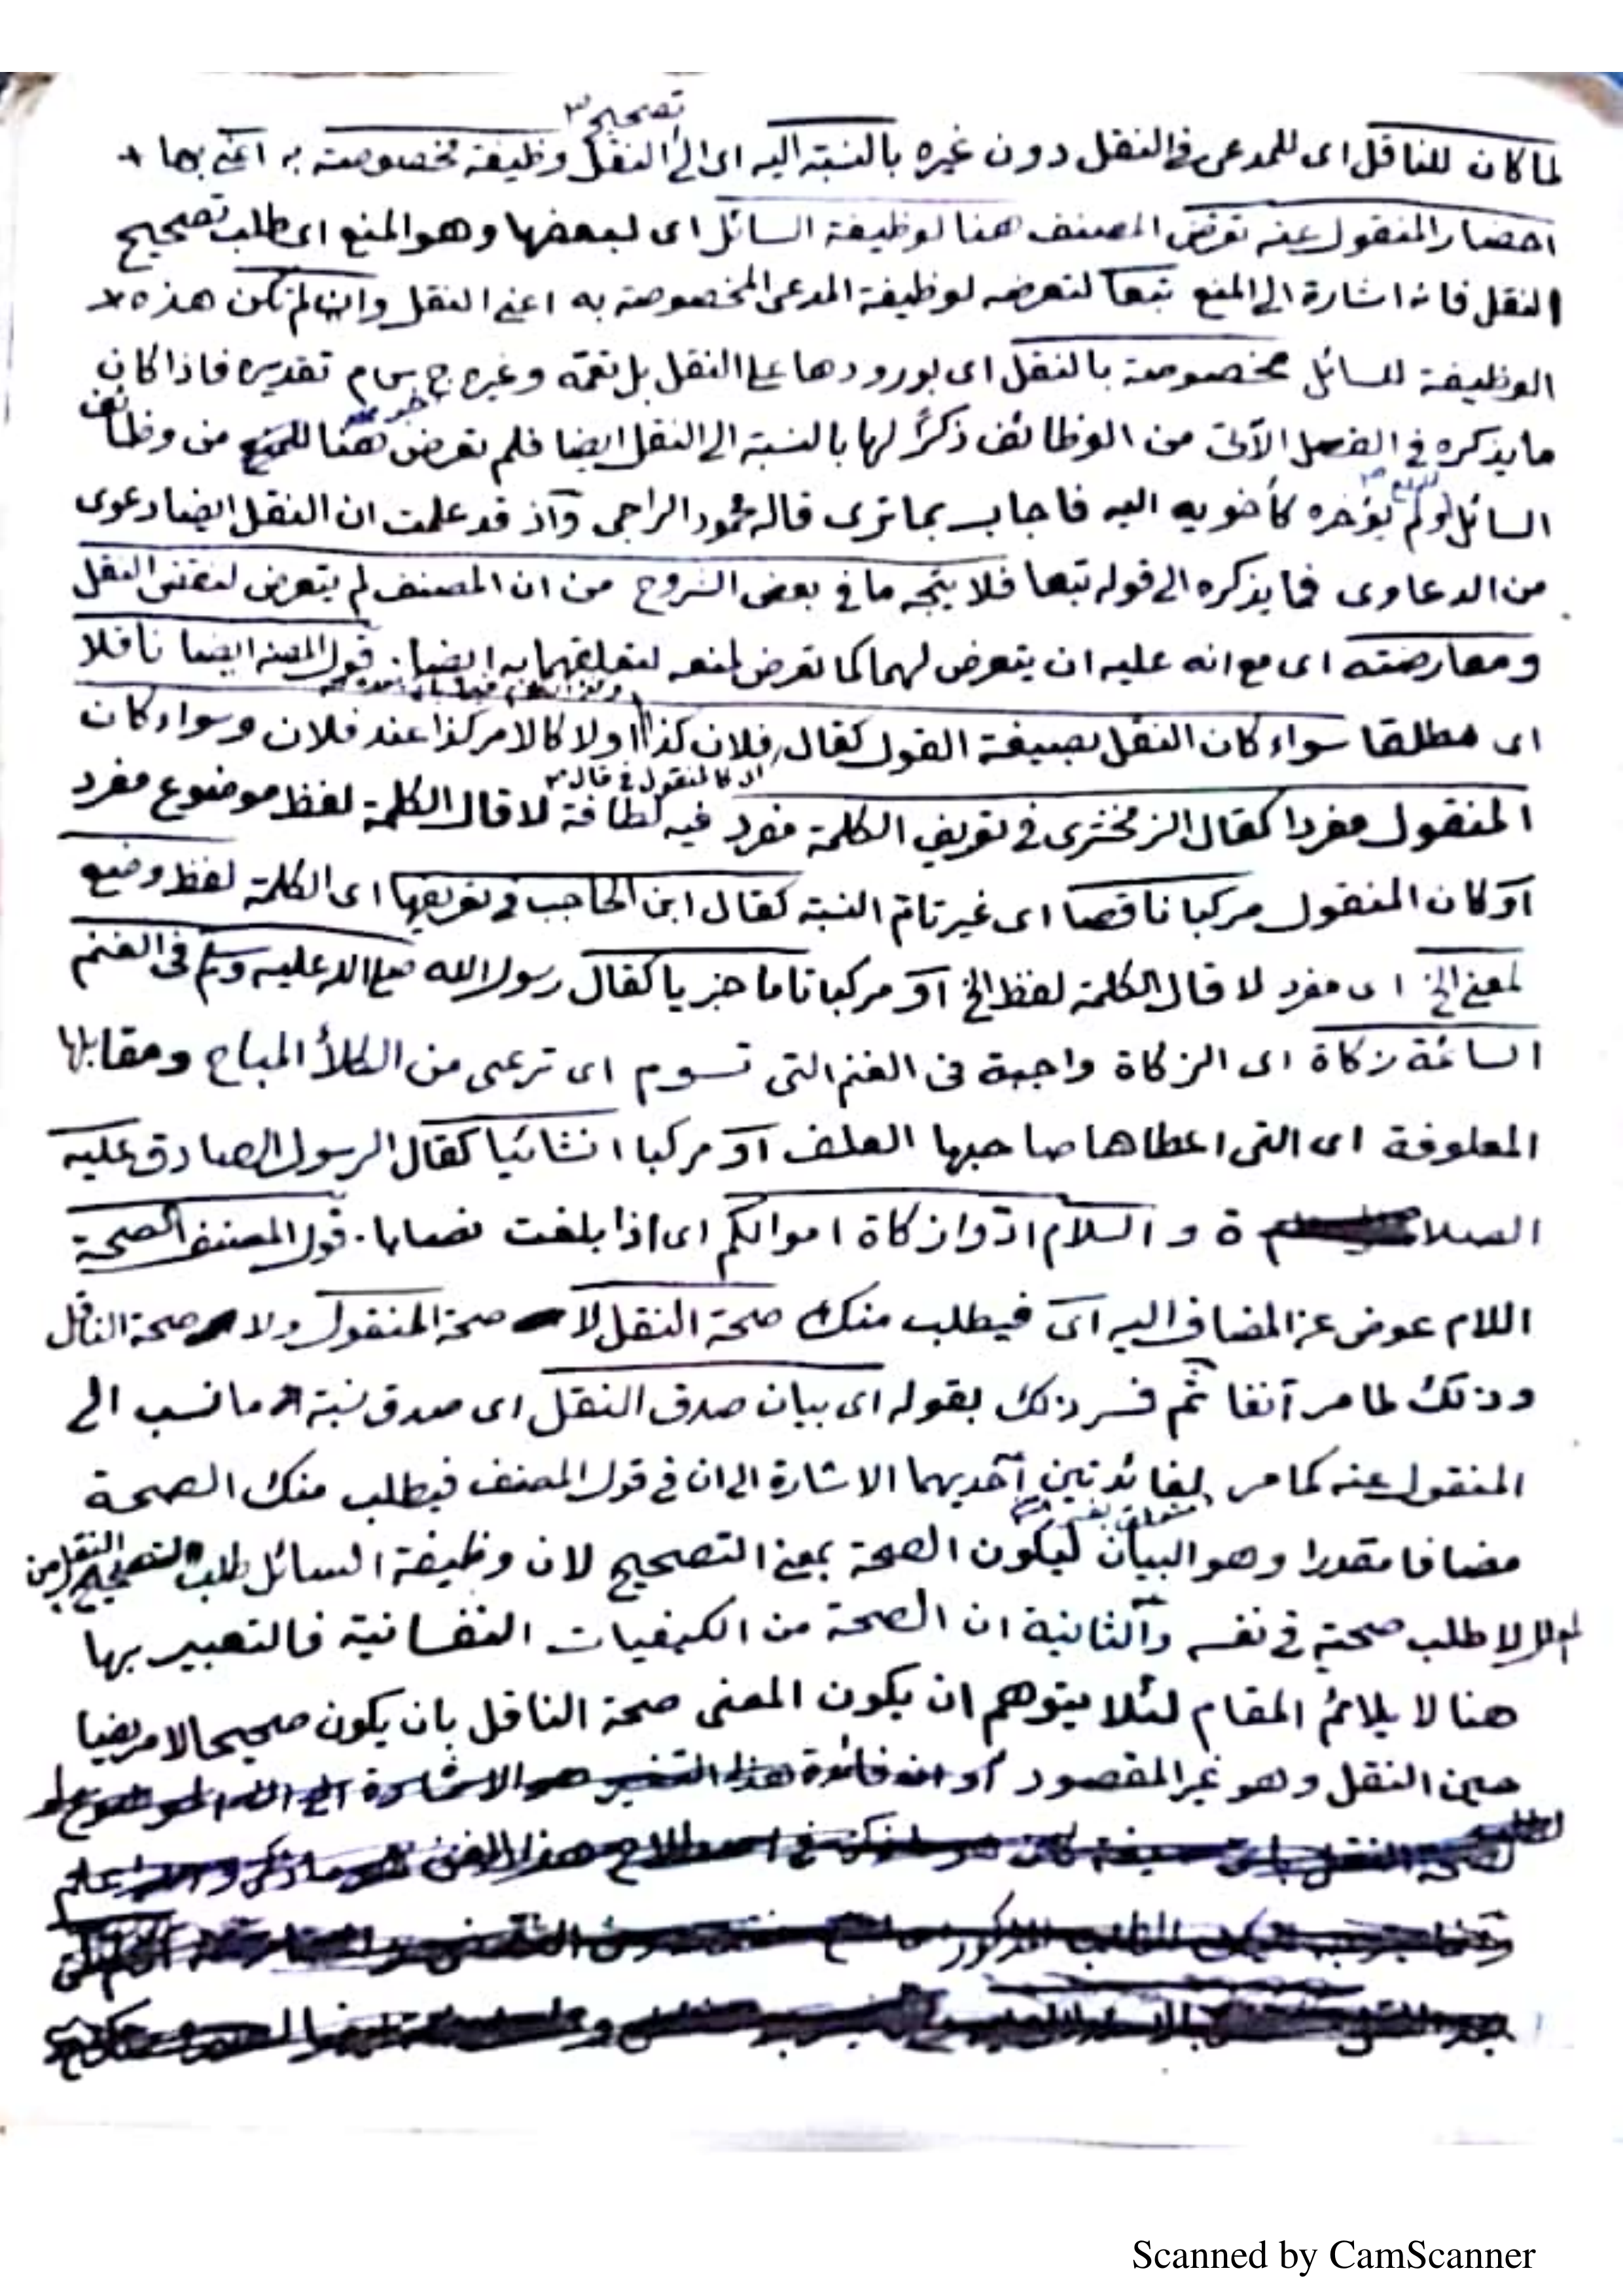 تصحيح٣
لما كان للناقل اى للمدعى فى النقل دون غيره بالنسبة اليه اى الى النقل وظيفة مخصوصة به اعنى بها
احضار المنقول عنه تعرض المصنف هنا لوظيفة السائل اى لبعضها وهو المنع اى طلب تصحيح
النقل فانه اشارة الى المنع تبعا لتعرضه لوظيفة المدعى المخصوصة به اعنى النقل وان لم تكن هذه
الوظيفة للسائل مخصوصة بالنقل اى بورودها على النقل بل تعمه وغيره تقديره فاذا كان
ما يذكره فى الفصل الآتى من الوظائف ذكرٌ لها بالنسبة الى النقل ايضا فلم تعرض هنا للمنع من وظائف
السائل ولم يؤخره كأخويه اليه فاجاب بما ترى قاله محمود الراجى وآذ قد علمت ان النقل ايضا دعوى
من الدعاوى فما يذكره الى قوله تبعا فلا يتجه ما فى بعض الشروح من ان المصنف لم يتعرض لنقض النقل
ومعارضته اى مع انه عليه ان يتعرض لهما كما تعرض لمنعه لتعلقهما به ايضا. قول المصنف ايضا ناقلا
اى مطلقا سواء كان النقل بصيغة القول كقال فلان كذا اولا كالامر كذا عند فلان وسواء كان
المنقول مفردا كقال الزمخشرى فى تعريف الكلمة مفرد فيه لطافة لا قال الكلمة لفظ موضوع مفرد
آو كان المنقول مركبا ناقصا اى غير تام النسبة كقال ابن الحاجب فى تعريفها اى الكلمة لفظ وضع
لمعنى الخ اى مفرد لا قال الكلمة لفظ الخ آو مركبا تاما خبريا كقال رسول الله صلى الله عليه وسلم فى الغنم
السائمة زكاة اى الزكاة واجبة فى الغنم التى تسوم اى ترعى من الكلأ المباح ومقابلها
المعلوفة اى التى اعطاها صاحبها العلف آو مركبا انشائيا كقال الرسول الصادق عليه
الصلاة والسلام ادّوا زكاة اموالكم اى اذا بلغت نصابا. قول المصنف الصحة
اللام عوض عن المضاف اليه اى فيطلب منك صحة النقل لا صحة المنقول ولا صحة الناقل
وذلك لما مر آنفا ثم فسر ذلك بقوله اى بيان صدق النقل اى صدق نسبة ما نسب الى
المنقول عنه كما مر لفائدتين آحديهما الاشارة الى ان فى قول المصنف فيطلب منك الصحة
مضافا مقدرا وهو البيان ليكون الصحة بمعنى التصحيح لان وظيفة السائل طلب تصحيح النقل من
لا طلب صحته فى نفسه وآلثانية ان الصحة من الكيفيات النفسانية فالتعبير بها
هنا لا يلائم المقام لئلا يتوهم ان يكون المعنى صحة الناقل بان يكون صحيحا لا مريضا
حين النقل وهو غير المقصود
Scanned by CamScanner